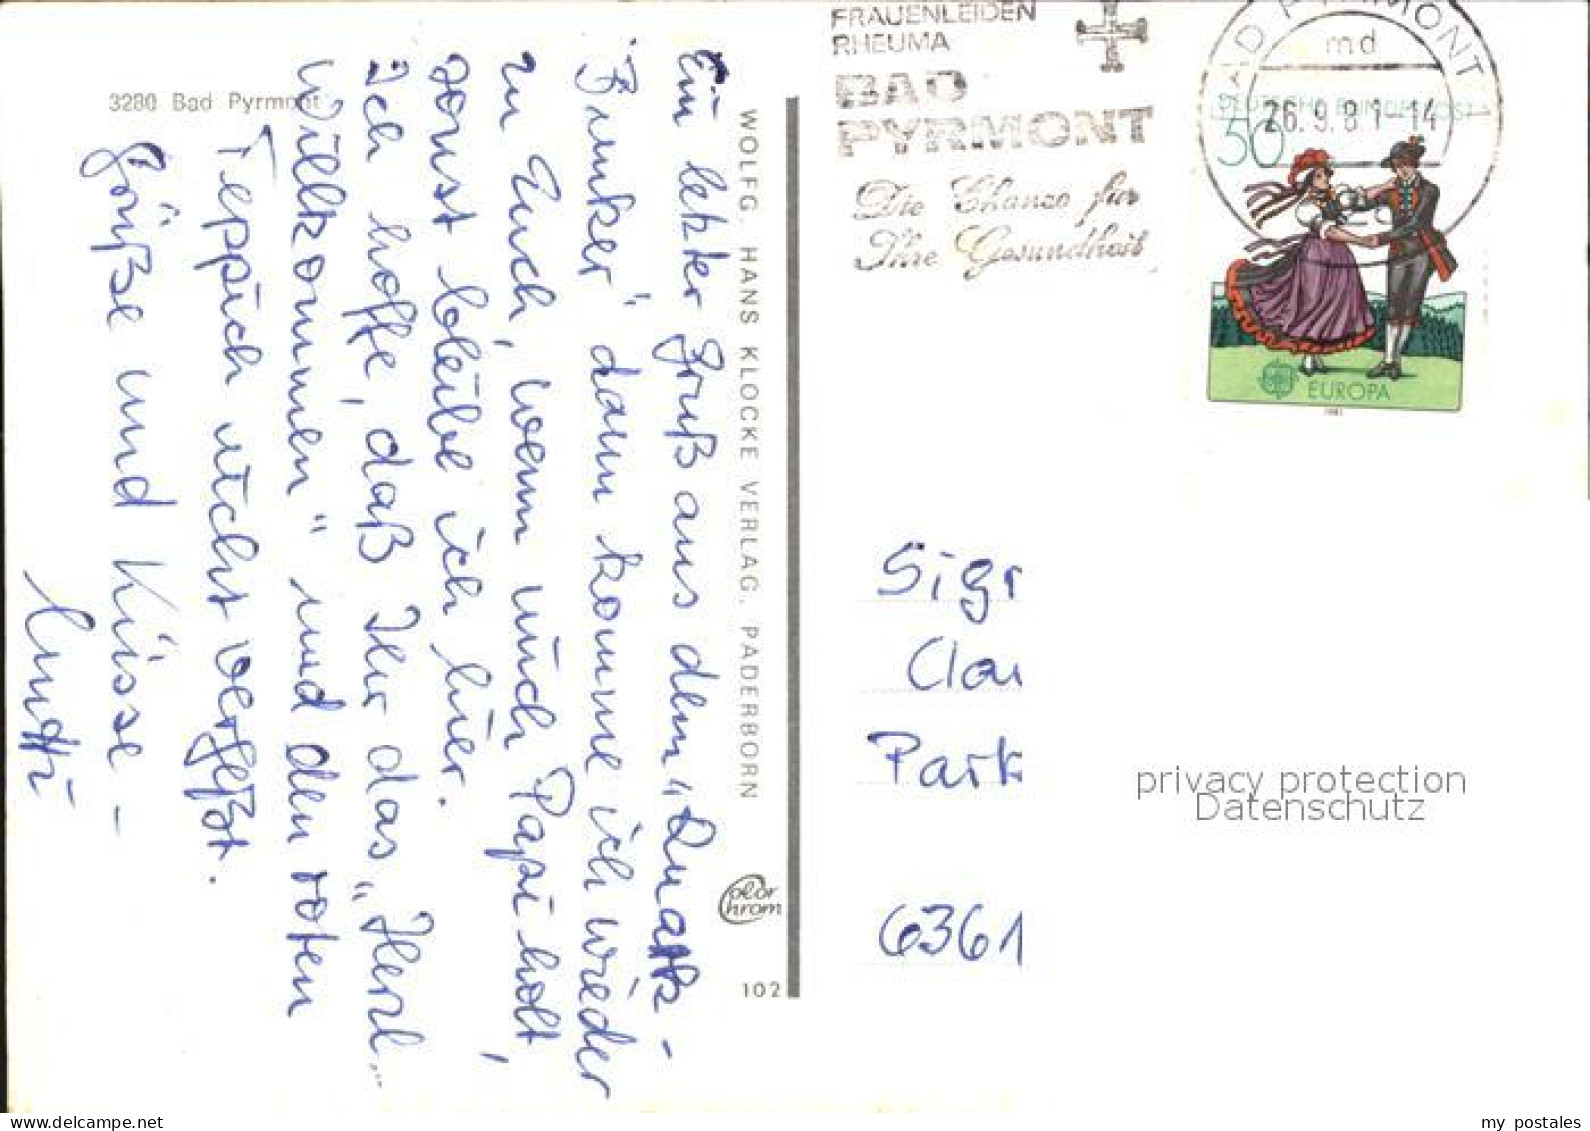 3280 Bad Pyrmont
Ein letzter Gruß aus dem „Quark-
Bunker“ dann komme ich wieder
zu Euch, wenn mich Papi holt,
sonst bleibe ich hier.
Ich hoffe, daß Ihr das „Herzl...
Willkommen“ und den roten
Teppich nicht vergeßt.
Grüße und Küsse –
Mutti
WOLFG. HANS KLOCKE VERLAG, PADERBORN
Color
Chrom
102
FRAUENLEIDEN
RHEUMA
BAD
PYRMONT
Die Chance für
Ihre Gesundheit
BAD PYRMONT 1
md
26.9.81-14
DEUTSCHE BUNDESPOST
50
EUROPA
1981
Sigr
Clau
Park
6361
privacy protection
Datenschutz
www.delcampe.net
my postales